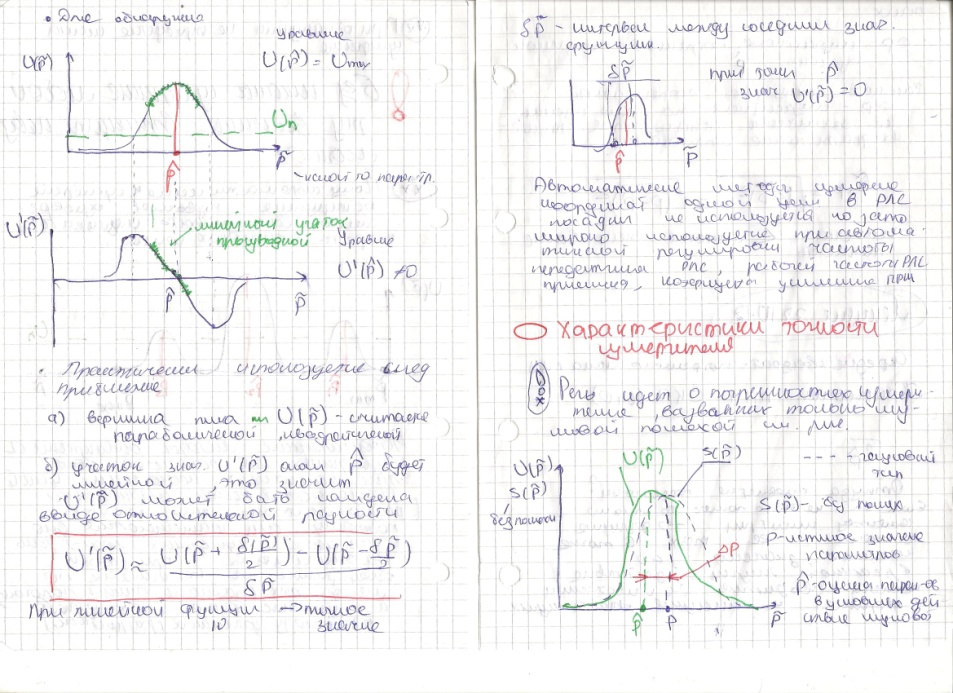 • Для обнаружения
Уравнение
U(p̃)
U(p̂) = Umax
Uп
p̂
p̃
U'(p̃)
линейный участок
производной
Уравнение
U'(p̂) ≠ 0
p̂
p̃
• Практически используется след
приближение
а) вершина пика U(p̃) - считается
параболической, квадратичной
б) участок знач. U'(p̃) около p̂ будет
линейной, это значит
U'(p̃) может быть найдена
ввиде относительной разности
U'(p̃) ≈ (U(p̃ + δ(p̃)/2) - U(p̃ - δp̃/2)) / δp̃
При линейной функции → точное
10
значение
δp̃ - интервал между соседним знач.
функции.
δp̃
при p̂
знач U'(p̃) = 0
p̂
p̃
Автоматические методы измерение
координат одной цели в РЛС
посадки не используется но зато
широко используется при автома-
тической регулировки частоты
передатчика РЛС, рабочей частоты РЛС
приемника, коэффициента усиления ПРМ
Характеристики точности
измерителя
Речь идет о погрешностях измери-
теля, вызванных только шу-
мовой помехой
U(p̃)
S(p̃)
без помехи
U(p̃)
S(p̃)
---- гауссовский
S(p̃) - без помех
P - истиное значение
параметров
ΔP
p̂ - оценка парам-ов
в условиях дей
ствие шумовой
p̂
P
p̃